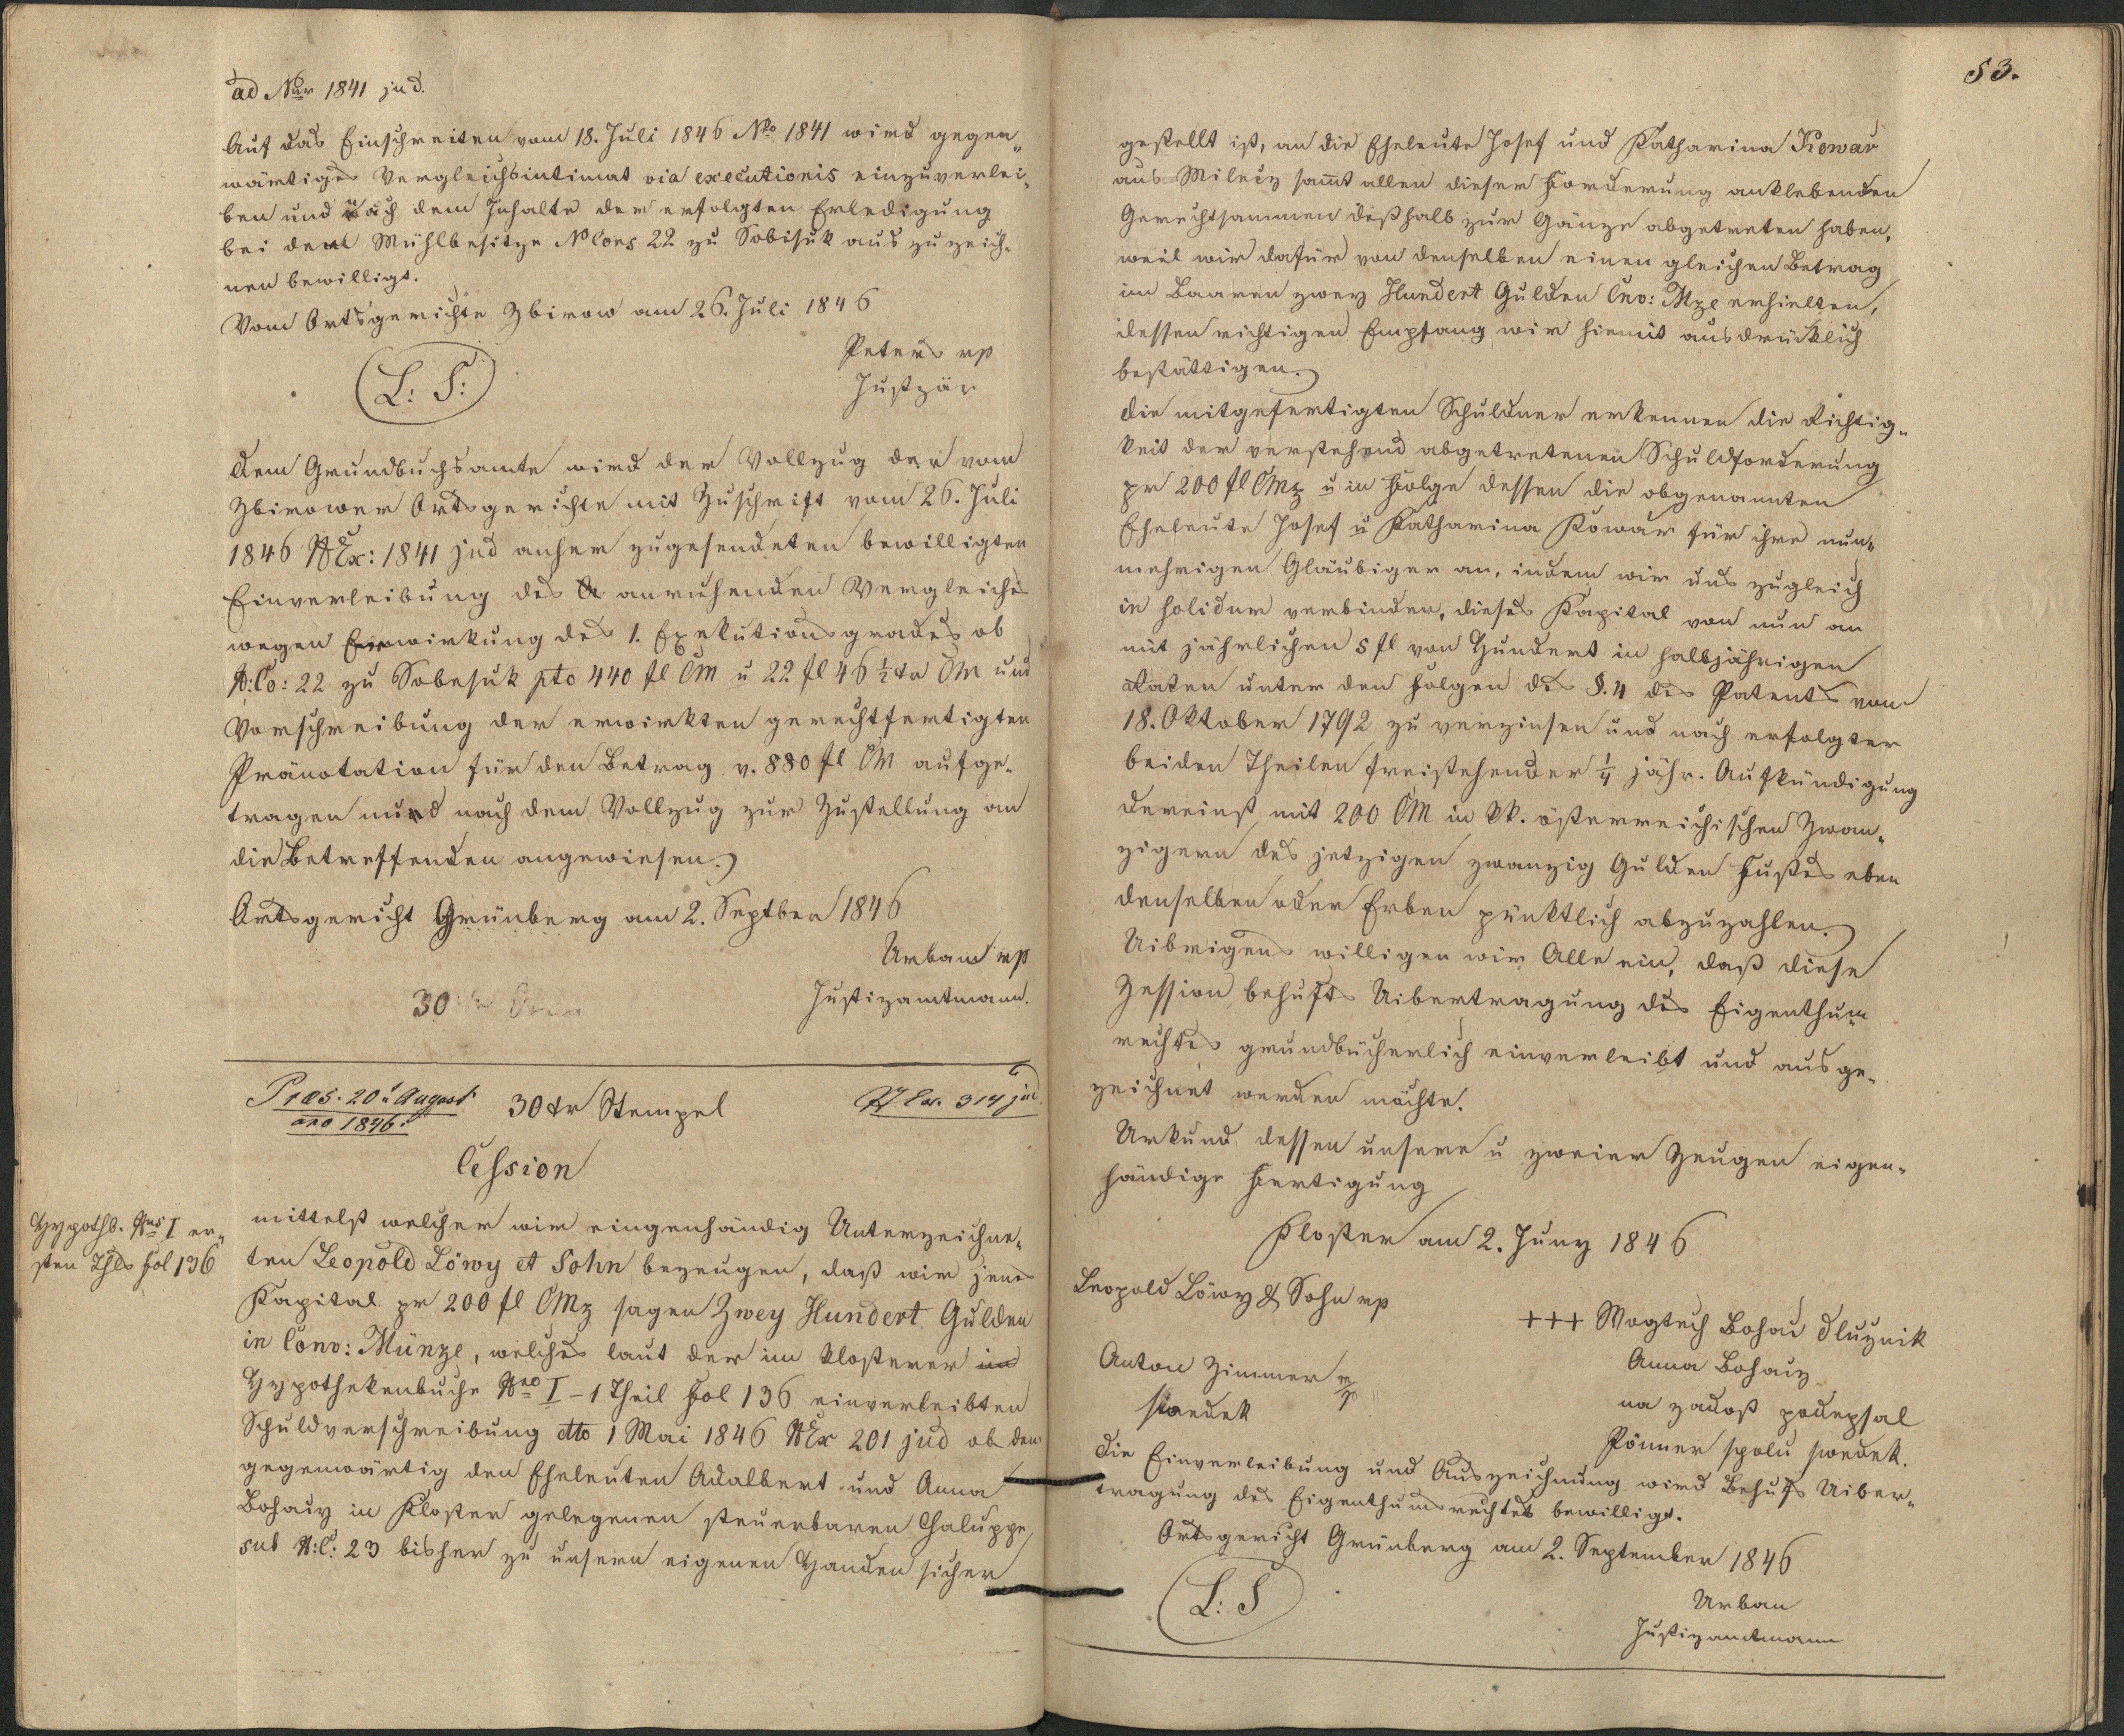 ad Nur 1841 jud.
Auf das Einschreiten vom 18. Juli 1846 No 1841 wird gegen„
wärtiges Vergleichsintimat via executionis einzuverlei„
ben und nach dem Inhalte der erfolgten Erledigung
bei dem Mühlbesitze NCons 22 zu Sobisuk auszuzeich„
nen bewilligt.
Vom Ortsgerichte Zbirow am 26. Juli 1846
Peters mp
L: S:
Justzär
Dem Grundbuchsamte wird der Vollzug der vom
Zbirower Ortsgerichte mit Zuschrift vom 26. Juli
1846 NEx: 1841 jud anher zugesendeten bewilligten
Einverleibung des anruhenden Vergleiches
wegen Erwirkung des 1. Exekutionsgrades ob
N:Co: 22 zu Sobesuk pto 440 fl CM u 22 fl 46 ½ xr CM und
Vorschreibung der erwirkten gerechtfertigten
Pränotation für den Betrag v. 880 fl CM aufge„
tragen und nach dem Vollzug zur Zustellung an
die Betreffenden angewiesen.
Ortsgericht Grünberg am 2. Septber 1846
Urban mp
Justizamtmann.
30 xr
Præs. 20t August
ano 1846.
30 xr Stempel
NEx. 314 jud.
Cession
Hypothb. Nus I er„
sten Thls fol 136
mittelst welcher wir eingenhändig Unterzeichne„
ten Leopold Löwy et Sohn bezeugen, daß wir jenes
Kapital pr 200 fl CMz sagen Zwey Hundert Gulden
in Conv: Münze, welches laut der im Klosterer im
Hypothekenbuche Nro I – 1 Theil Fol 136 einverleibten
Schuldverschreibung dto 1 Mai 1846 NEx 201 jud ob der
gegenwärtig den Eheleuten Adalbert und Anna
Bohaciz in Kloster gelegenen steuerbaren Chaluppe
sub N:C: 23 bisher zu unsern eigenen Handen sicher
53.
gestellt ist, an die Eheleute Josef und Katharina Kowar
aus Milecz sammt allen dieser Forderung anklebenden
Gerechtsammen deßhalb zur Gänze abgetreten haben,
weil wir dafür von denselben einen gleichen Betrag
im Baaren zwey Hundert Gulden Cnv: Mze erhielten,
dessen richtigen Empfang wir hiemit ausdrücklich
bestättigen.
Die mitgefertigten Schuldner erkennen die Richtig„
keit der verstehend abgetretenen Schuldforderung
pr 200 fl CMz u in Folge dessen die obgenannten
Eheleute Josef u Katharina Kowar für ihre nun„
mehrigen Gläubiger an, indem wir uns zugleich
in solidum verbinden, dieses Kapital von nun an
mit jährlichen 5 fl von Hundert in halbjährigen
Raten unter den Folgen des §. 4 des Patents vom
18. Oktober 1792 zu verzinsen und nach erfolgter
beiden Theilen freistehender ¼ jähr. Aufkündigung
dereinst mit 200 CM in kk. österreichischen Zwan„
zigern des jetzigen zwanzig Gulden Fußes eben
denselben oder Erben pünktlich abzuzahlen.
Uibrigens willigen wir Alle ein, daß diese
Zession behufs Uibertragung des Eigenthum
rechtes grundbücherlich einverleibt und ausge„
zeichnet werden möchte.
Urkund dessen unsere u zweier Zeugen eigen„
händige Fertigung
Kloster am 2. Juny 1846
Leopold Löwy & Sohn mp
+++ Wogtech Bohac dluznik
Anton Zimmer mp
Anna Bohaciz
swedek
na zadost podepsal
Pönner spolu swedek.
Die Einverleibung und Auszeichnung wird Behufs Uiber„
tragung des Eigenthumsrechtes bewilligt.
Ortsgericht Grünberg am 2. September 1846
L: S
Urban
Justizamtmann